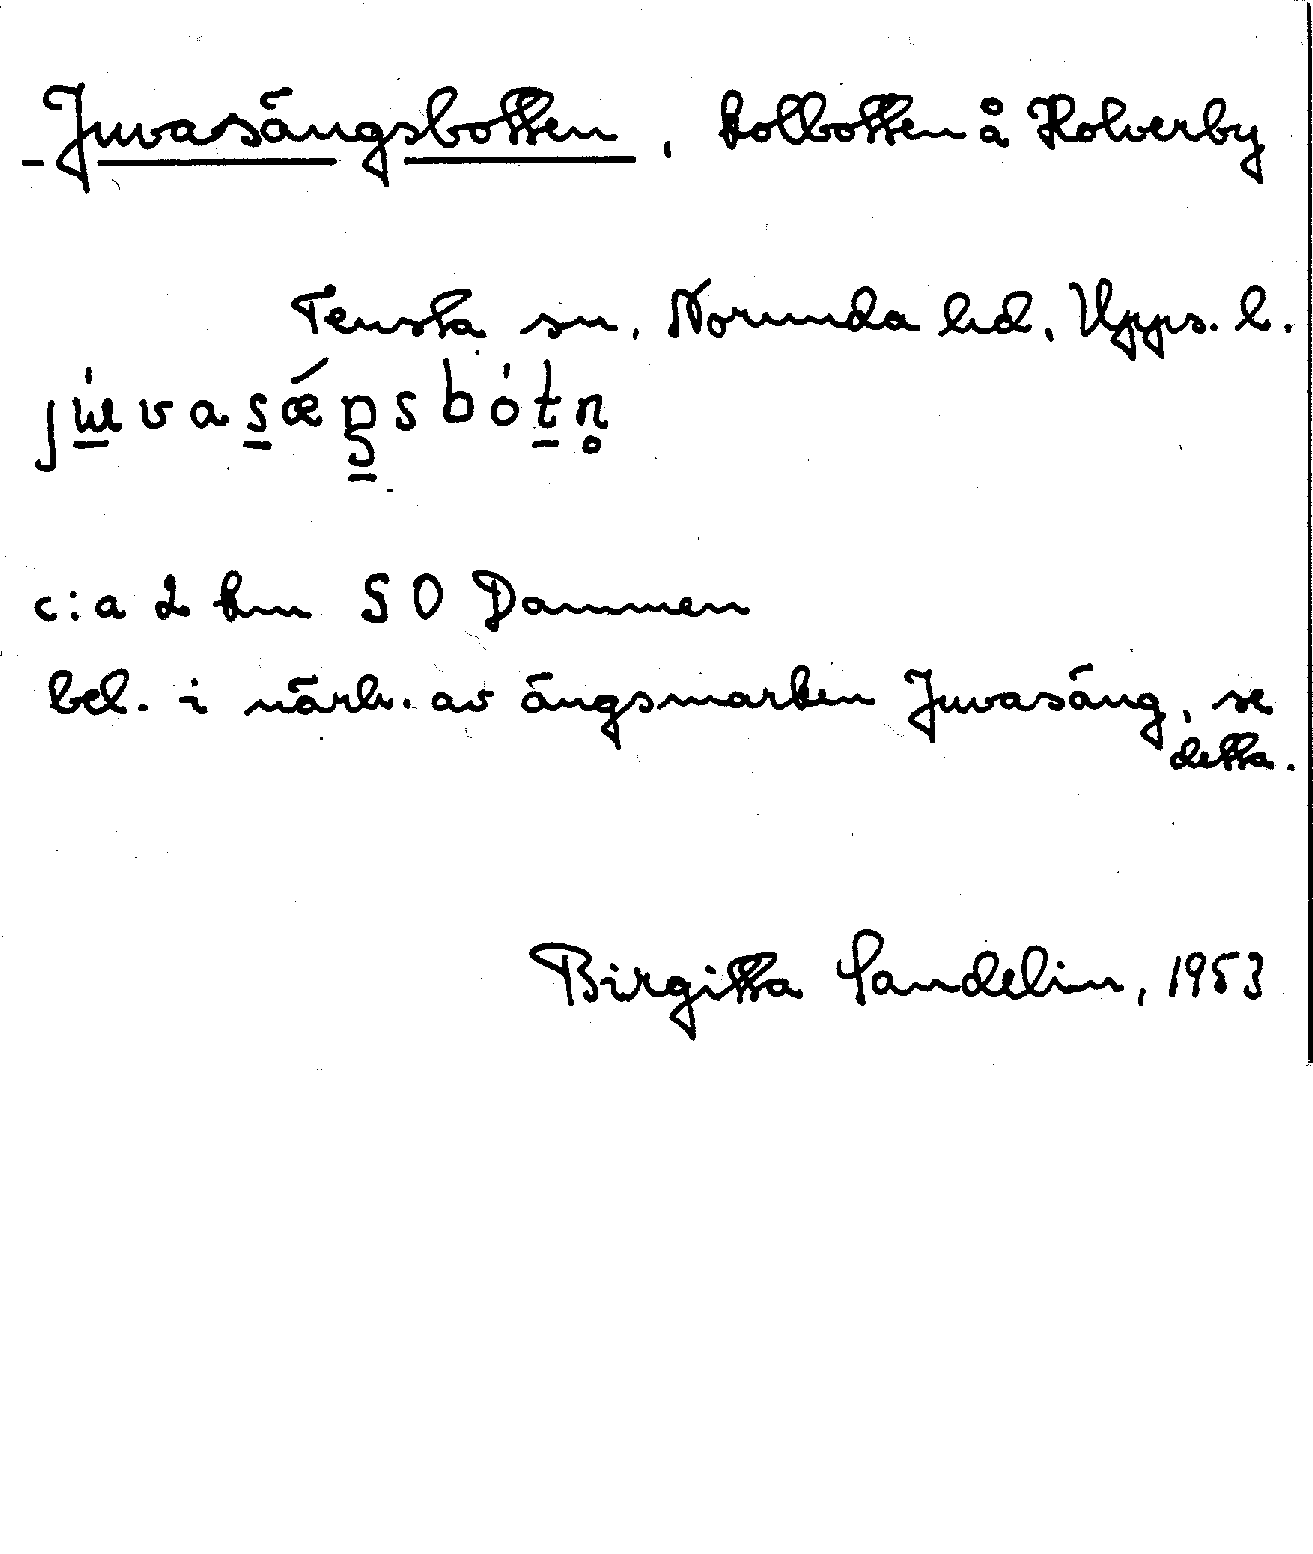 Juvasängsbotten, kolbotten å Kolverby
Tensta sn, Norunda hd, Upps. l.
c:a 2 km SO Dammen
bel. i närh. av ängsmarken Juvasäng, se
detta.
Birgitta Sandelin, 1953